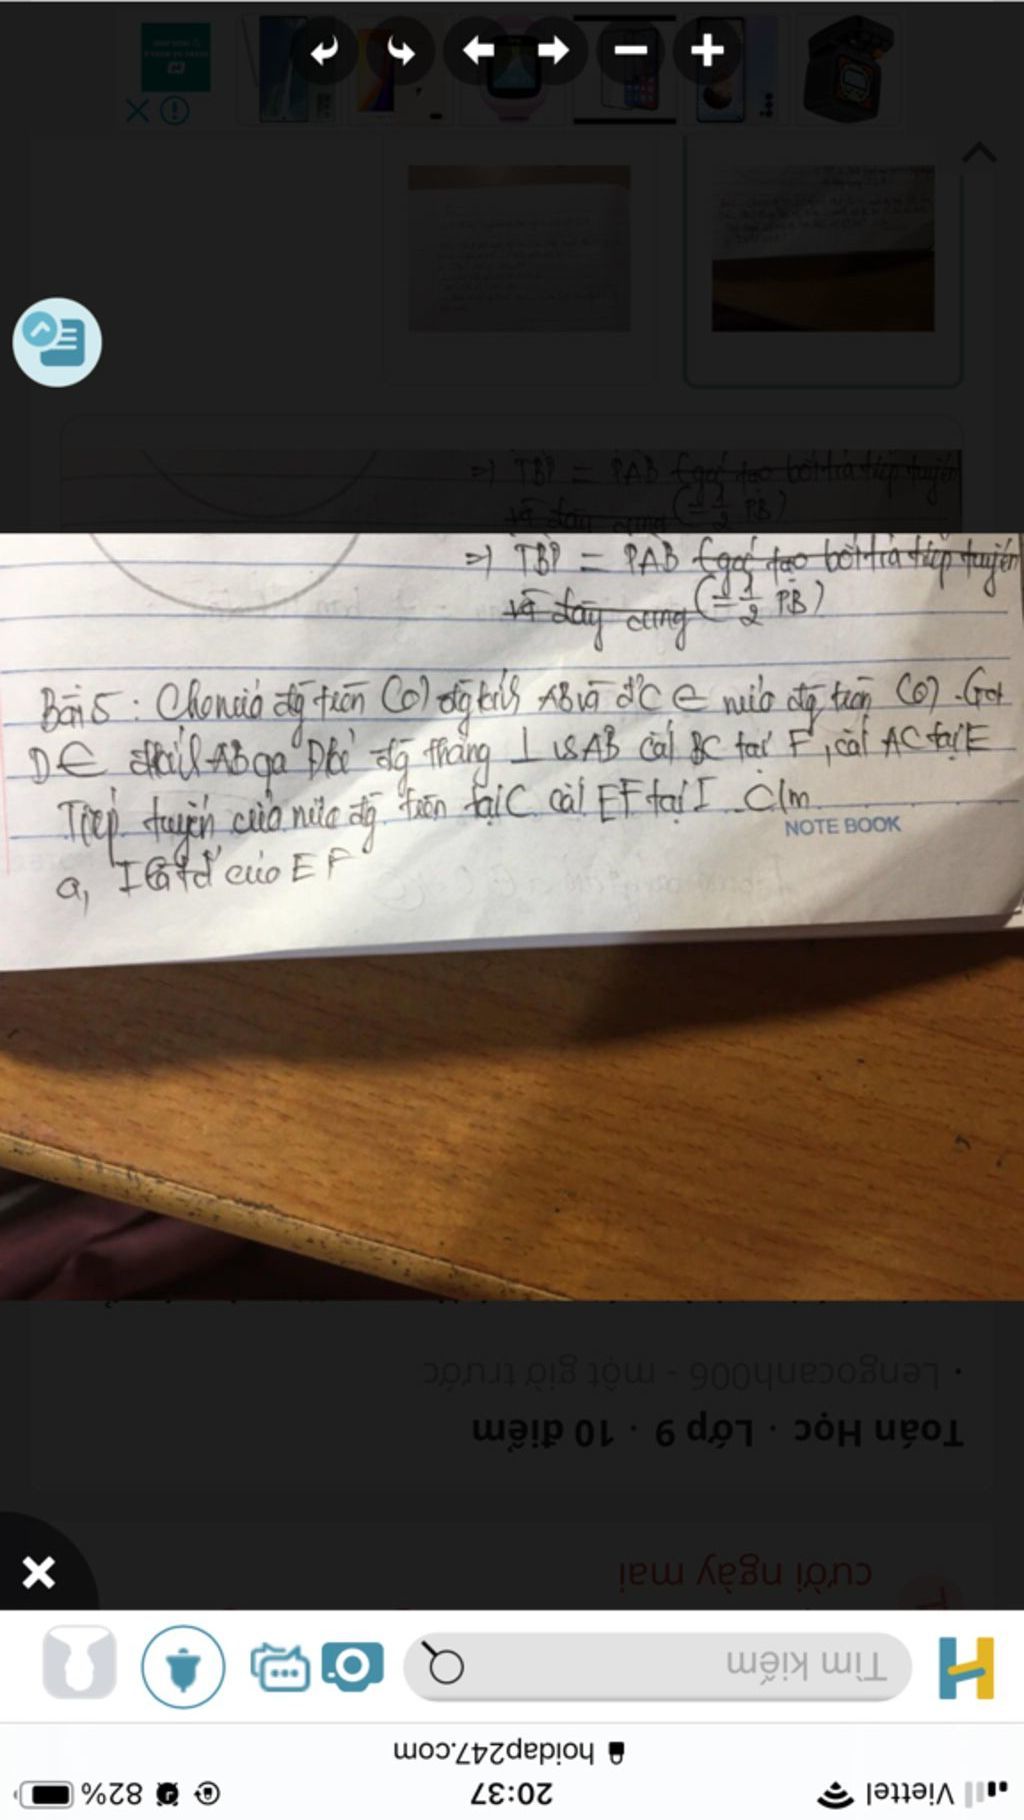 ⇒ TBP = PAB (góc tạo bởi tia tiếp tuyến
và dây cung (= 1/2 PB)
⇒ TBP = PAB (góc tạo bởi tia tiếp tuyến
và dây cung (= 1/2 PB)
Bài 5 : Cho nửa đg tròn (O) đg kính AB và đ'C ∈ nửa đg tròn (O). Gọi
D ∈ AB qua D kẻ đg thẳng ⊥ vs AB cắt BC tại F, cắt AC tại E
Tiếp tuyến của nửa đg tròn tại C cắt EF tại I. C/m
NOTE BOOK
a, I là tđ' của EF
· Lengocanh006 - một giờ trước
Toán Học · Lớp 9 · 10 điểm
cười ngày mai
Tìm kiếm
hoidap247.com
Viettel 20:37 82%